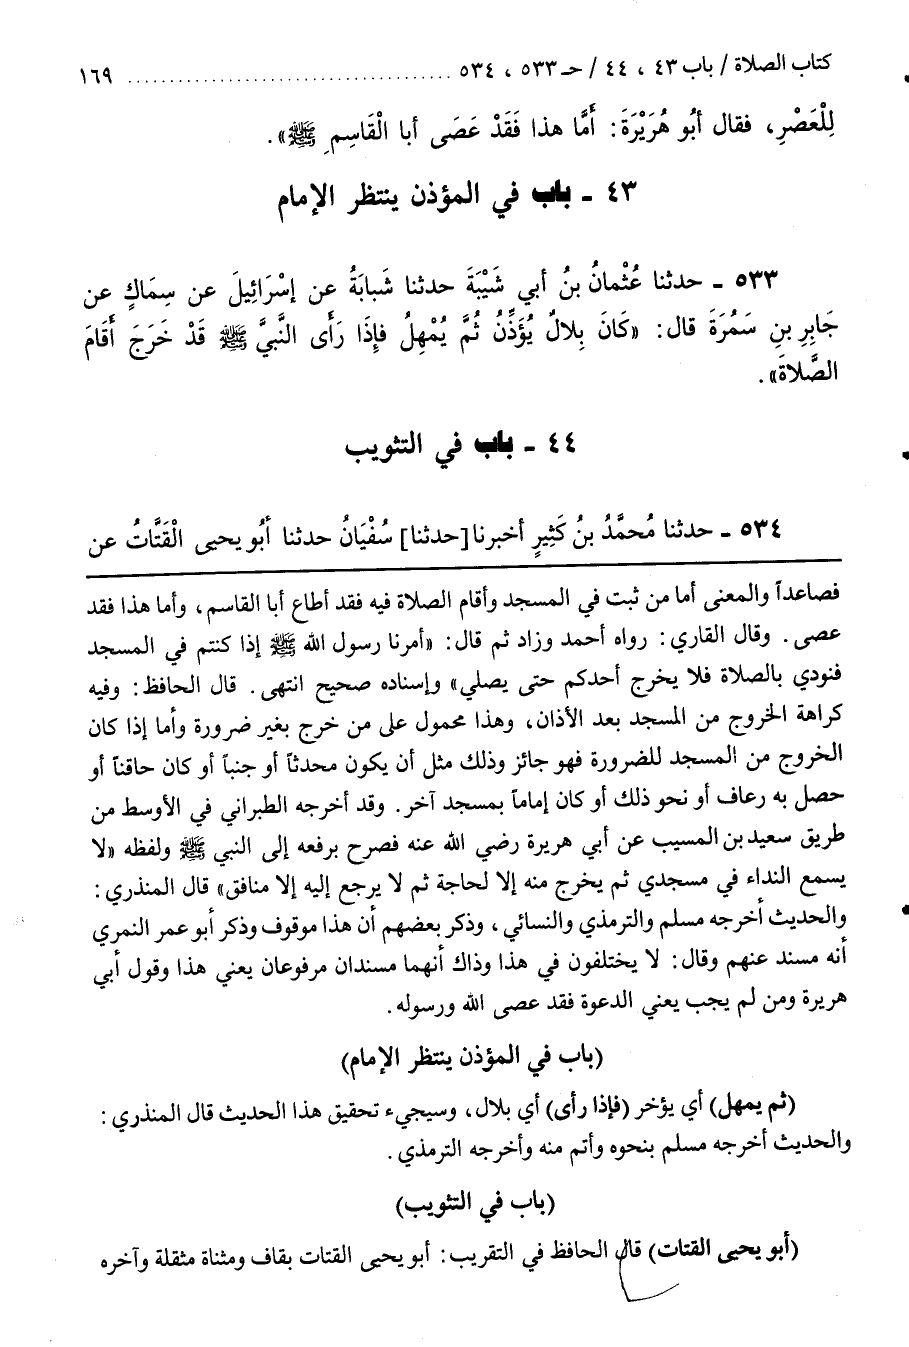 كتاب الصلاة / باب ٤٣ ، ٤٤ / حـ ٥٣٣ ، ٥٣٤ ........................................ ١٦٩
لِلْعَصْرِ، فقال أبُو هُرَيْرَةَ: أَمَّا هذا فَقَدْ عَصَى أبا الْقَاسِمِ ﷺ».
٤٣ - باب في المؤذن ينتظر الإمام
٥٣٣ - حدثنا عُثْمانُ بنُ أبي شَيْبَةَ حدثنا شَبابَةُ عن إسْرَائِيلَ عن سِمَاكٍ عن
جَابِرِ بنِ سَمُرَةَ قال: «كَانَ بِلالٌ يُؤَذِّنُ ثُمَّ يُمْهِلُ فإِذَا رَأَى النَّبيَّ ﷺ قَدْ خَرَجَ أقَامَ
الصَّلاةَ».
٤٤ - باب في التثويب
٥٣٤ - حدثنا مُحمَّدُ بنُ كَثِيرٍ أخبرنا [حدثنا] سُفْيَانُ حدثنا أبُو يحيى الْقَتَّاتُ عن
فصاعداً والمعنى أما من ثبت في المسجد وأقام الصلاة فيه فقد أطاع أبا القاسم، وأما هذا فقد
عصى. وقال القاري: رواه أحمد وزاد ثم قال: «أمرنا رسول الله ﷺ إذا كنتم في المسجد
فنودي بالصلاة فلا يخرج أحدكم حتى يصلي» وإسناده صحيح انتهى. قال الحافظ: وفيه
كراهة الخروج من المسجد بعد الأذان، وهذا محمول على من خرج بغير ضرورة وأما إذا كان
الخروج من المسجد للضرورة فهو جائز وذلك مثل أن يكون محدثاً أو جنباً أو كان حاقناً أو
حصل به رعاف أو نحو ذلك أو كان إماماً بمسجد آخر. وقد أخرجه الطبراني في الأوسط من
طريق سعيد بن المسيب عن أبي هريرة رضي الله عنه فصرح برفعه إلى النبي ﷺ ولفظه «لا
يسمع النداء في مسجدي ثم يخرج منه إلا لحاجة ثم لا يرجع إليه إلا منافق» قال المنذري:
والحديث أخرجه مسلم والترمذي والنسائي، وذكر بعضهم أن هذا موقوف وذكر أبو عمر النمري
أنه مسند عنهم وقال: لا يختلفون في هذا وذاك أنهما مسندان مرفوعان يعني هذا وقول أبي
هريرة ومن لم يجب يعني الدعوة فقد عصى الله ورسوله.
(باب في المؤذن ينتظر الإمام)
(ثم يمهل) أي يؤخر (فإذا رأى) أي بلال، وسيجيء تحقيق هذا الحديث قال المنذري:
والحديث أخرجه مسلم بنحوه وأتم منه وأخرجه الترمذي.
(باب في التثويب)
(أبو يحيى القتات) قال الحافظ في التقريب: أبو يحيى القتات بقاف ومثناة مثقلة وآخره